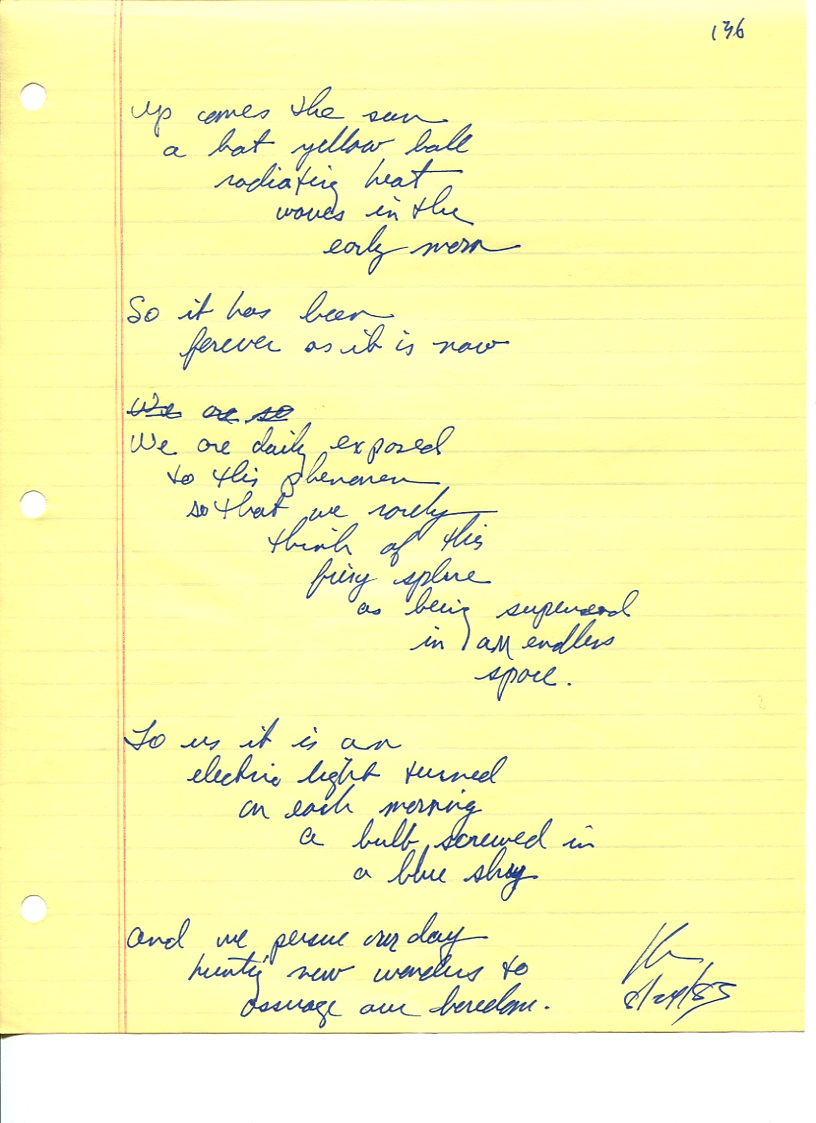 136
Up comes the sun
a hot yellow ball
radiating heat
waves in the
early morn
So it has been
forever as it is now
We are so
We are daily exposed
to this phenomen
so that we rarely
think of this
firey sphere
as being
in an endless
space.
To us it is an
electric light turned
on each morning
a bulb screwed in
a blue sky
and we persue our day
hunting new wonders to
assuage our boredom.
8/24/85